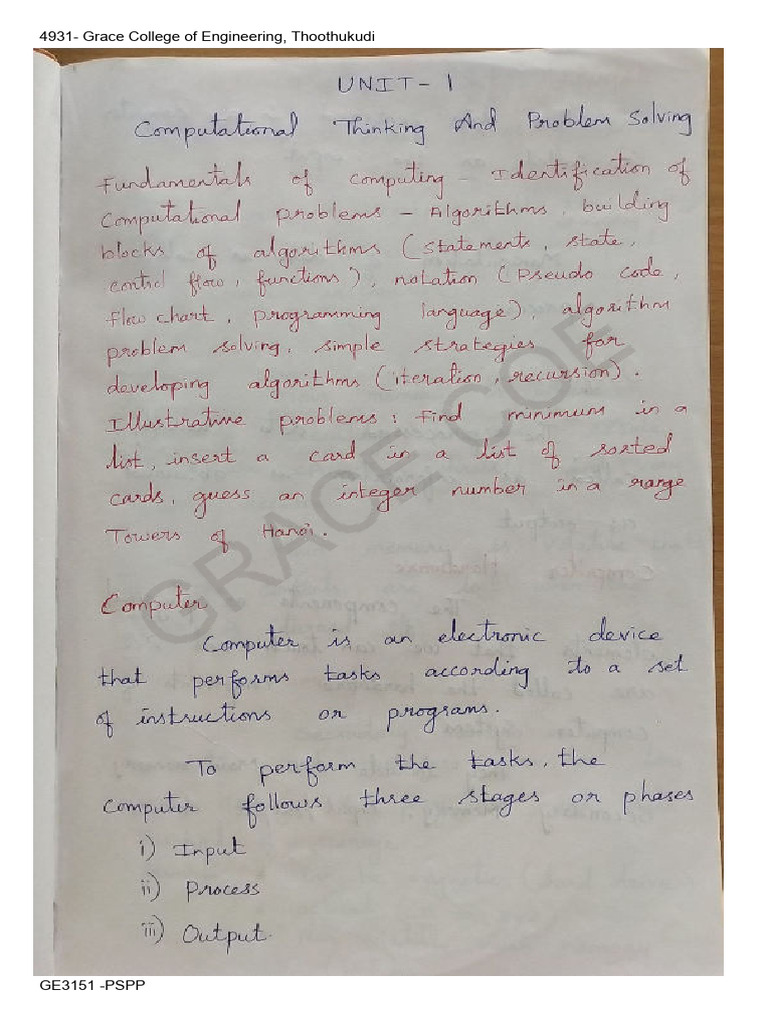 4931- Grace College of Engineering, Thoothukudi
UNIT - 1
Computational Thinking And Problem Solving
Fundamentals of computing - Identification of
Computational problems - Algorithms, building
blocks of algorithms (statements, state,
control flow, functions), notation (Pseudo code,
flow chart, programming language), algorithm
problem solving, simple strategies for
developing algorithms (iteration, recursion).
Illustrative problems : Find minimum in a
list, insert a card in a list of sorted
cards, guess an integer number in a range
Towers of Hanoi.
GRACE COE
Computer
Computer is an electronic device
that performs tasks according to a set
of instructions or programs.
To perform the tasks, the
computer follows three stages or phases
i) Input
ii) Process
iii) Output.
GE3151 -PSPP